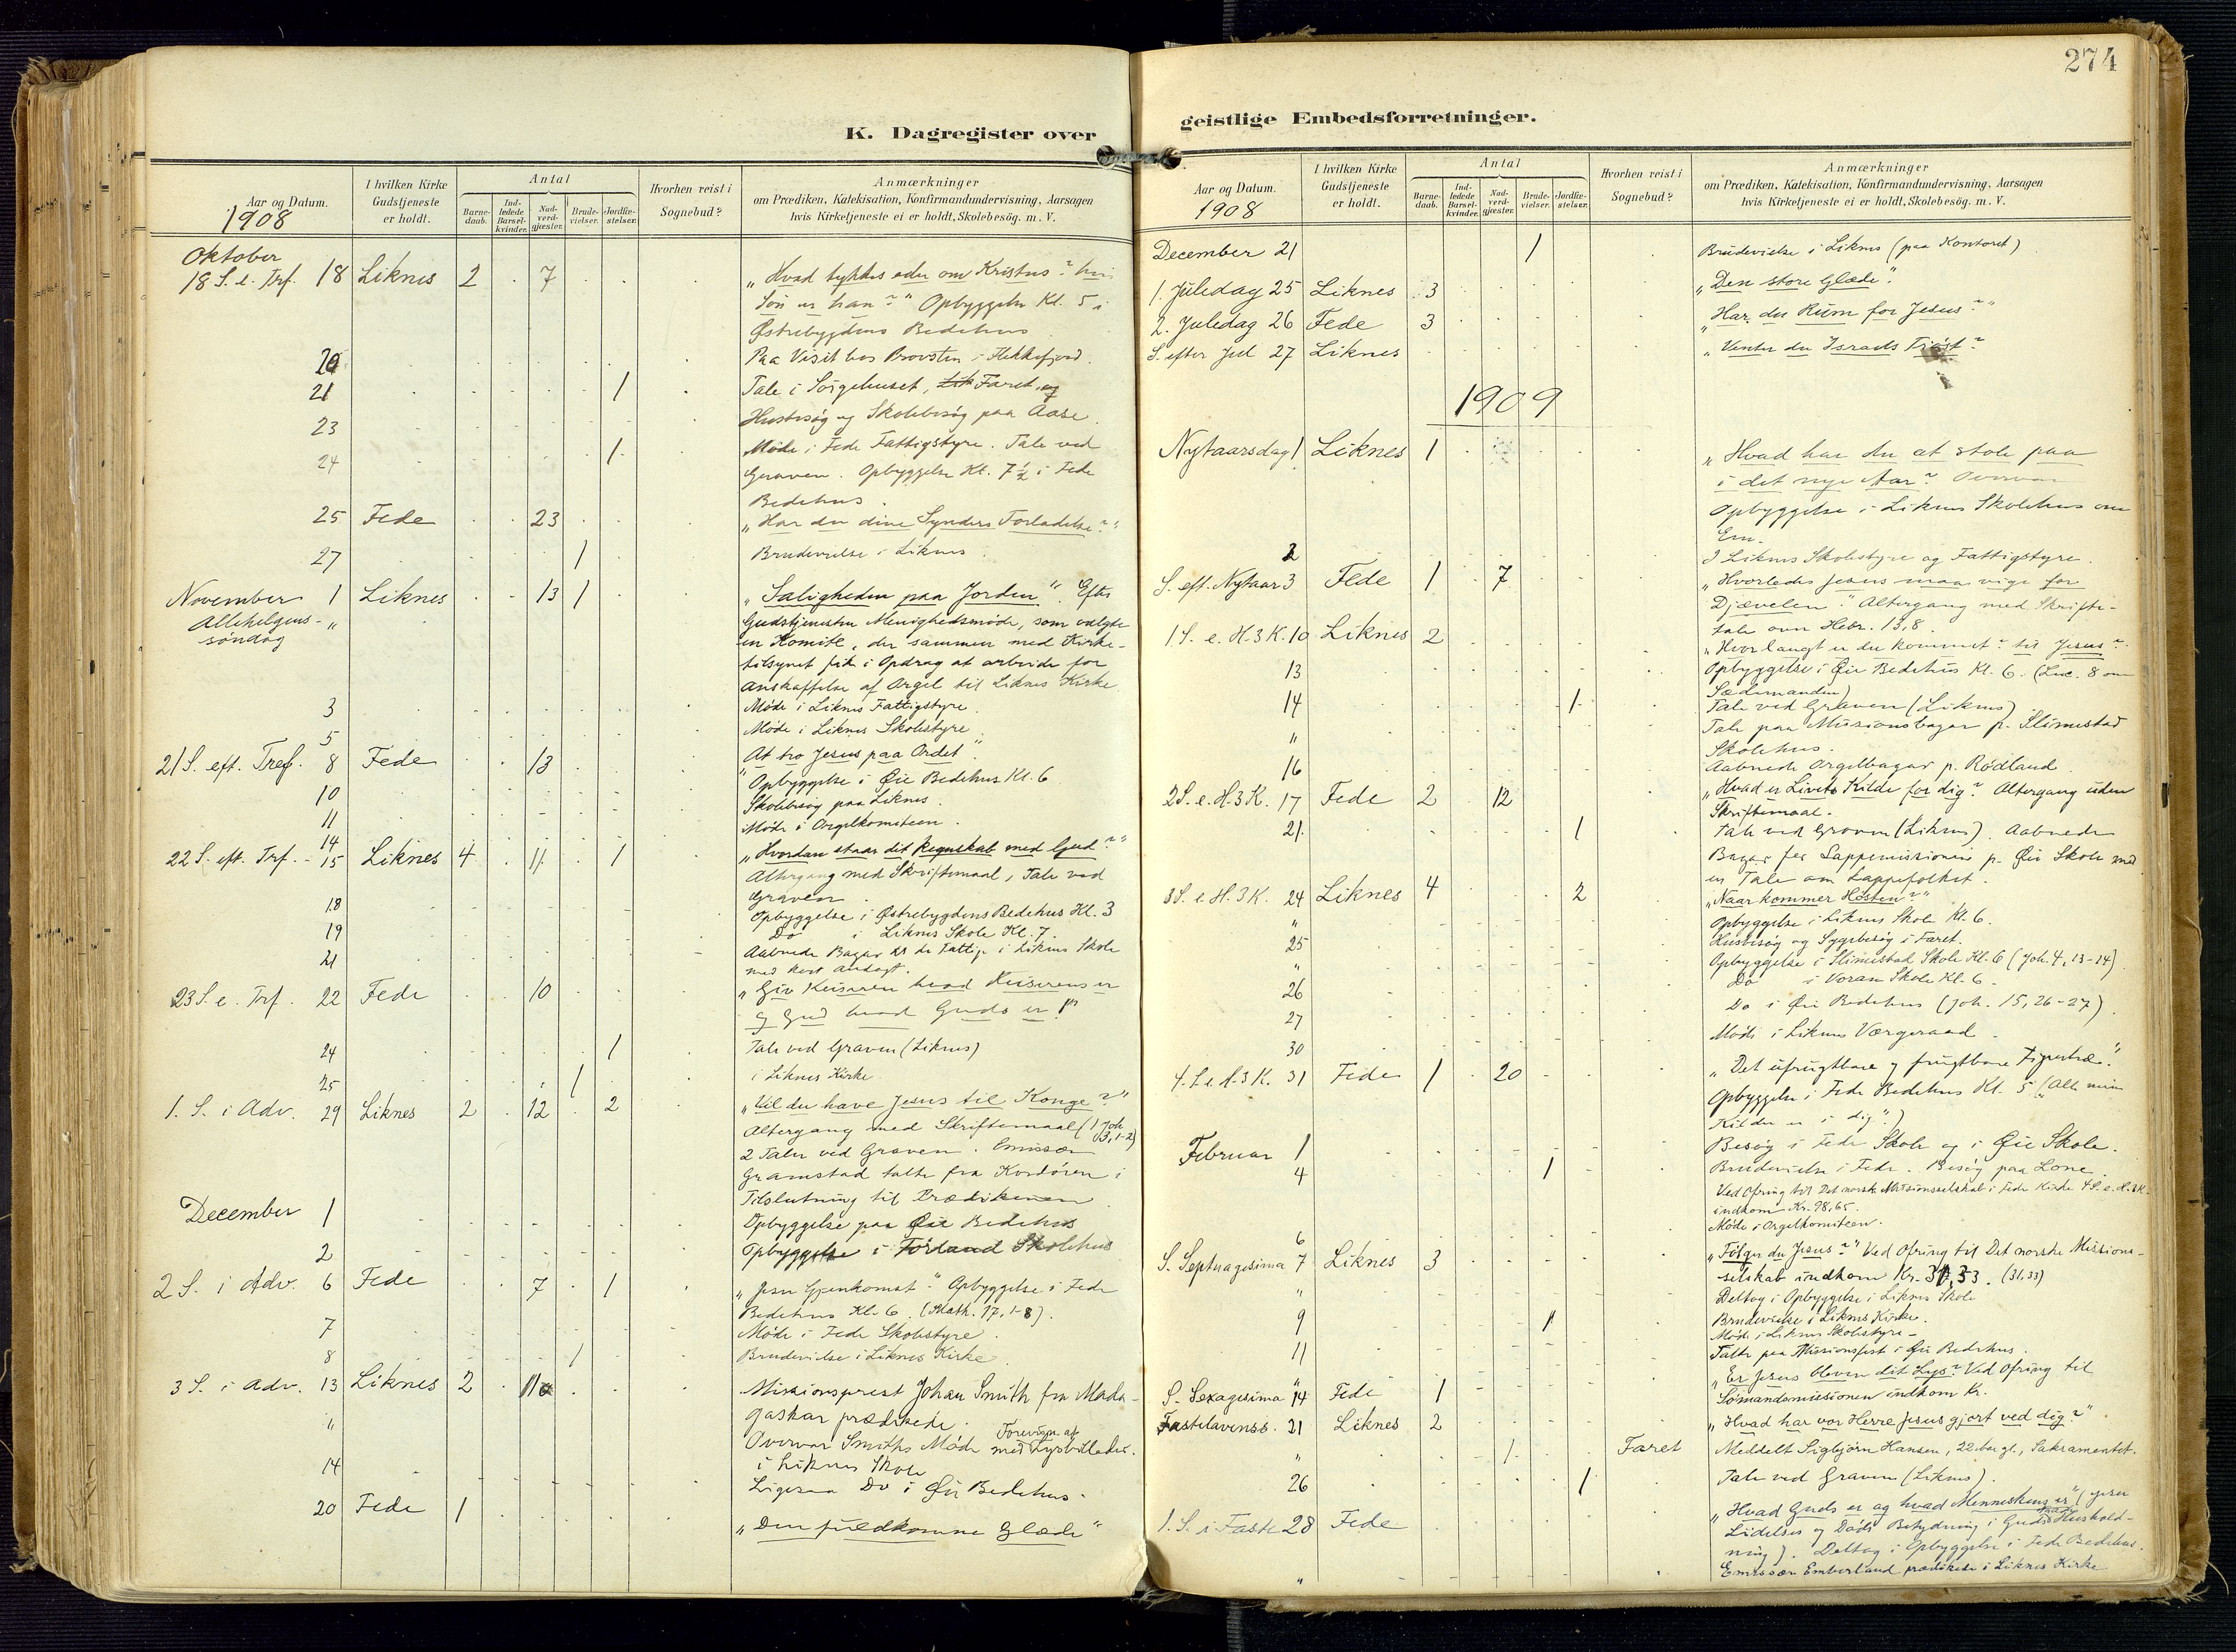 274
K. Dagregister over
Aar og Datum.
1908
I hvilken Kirke
Gudstjeneste
er holdt.
Antal
Barne-
daab.
Ind-
ledede
Barsel-
kvinder.
Nad-
verd-
gjæster.
Brude-
vielser.
Jordfæ-
stelser.
Hvorhen reist i
Sognebud?
Anmærkninger
om Prædiken, Katekisation, Konfirmandundervisning, Aarsagen
hvis Kirketjeneste ei er holdt, Skolebesög. m. V.
Oktober
18 S. e. Trf. 18 Liknes 2 7 „Hvad tykkes eder om Kristus? hvis
Søn er han?" Opbyggelse Kl. 5 i
Østrebygdens Bedehus
20 Paa Visit hos Provsten i Flekkefjord.
21 1 Tale i Sørgehuset, Faret, og
23 Husbesøg og Skolebesøg paa Aase.
24 1 Møde i Fede Fattigstyre. Tale ved
Graven. Opbyggelse Kl. 7½ i Fede
Bedehus.
25 Fede 23 „Har du dine Synders Forladelse?"
27 1 Brudevielse i Liknes.
November 1 Liknes 13 1 „Saligheden paa Jorden". Efter
Allehelgens- "
søndag
Gudstjenesten Menighedsmøde, som valgte
en Komite, der sammen med Kirke-
tilsynet fik i Opdrag at arbeide for
Anskaffelse af Orgel til Liknes Kirke
3 Møde i Liknes Fattigstyre.
5 Møde i Liknes Skolestyre
21 S. eft. Tref. 8 Fede 13 „At tro Jesus paa Ordet".
Opbyggelse i Øie Bedehus Kl. 6
10 Skolebesøg paa Liknes.
11 Møde i Orgelkomiteen.
14
22 S. eft. Trf. - 15 Liknes 4 11 1 „Hvordan staar dit Regnskab med Gud?"
Altergang med Skriftemaal, Tale ved
Graven.
18 Opbyggelse i Østrebygdens Bedehus Kl. 3
19 Do i Liknes Skole Kl. 7.
21 Aabnede Bazar for de Fattige i Liknes Skole
med kort Andagt.
23 S. e. Trf. 22 Fede 10 „Giv Keiseren hvad Keiserens er
og Gud hvad Guds er!"
24 1 Tale ved Graven (Liknes)
25 1 i Liknes Kirke
1. S. i Adv. 29 Liknes 2 12 2 „Vil du have Jesus til Konge?"
Altergang med Skriftemaal (1 Joh
3, 1-2)
2 Taler ved Graven. Emissær
Gramstad talte fra Kordøren i
Tilslutning til Prædikenen
December 1 Opbyggelse paa Øie Bedehus
2 Opbyggelse i Førland Skolehus
2 S. i Adv. 6 Fede 7 1 „Jesu Gjenkomst." Opbyggelse i Fede
Bedehus Kl. 6. (Math. 17, 1-8).
7 Møde i Fede Skolestyre.
8 1 Brudevielse i Liknes Kirke
3 S. i Adv. 13 Liknes 2 Missionsprest Johan Smith fra Mada-
gaskar prædikede.
" Overvar Smiths Møde med Forevisn. af Lysbilleder.
i Liknes Skole
14 Ligesaa Do i Øie Bedehus.
20 Fede 1 „Den fuldkomne Glæde"
geistlige Embedsforretninger.
Aar og Datum.
1908
I hvilken Kirke
Gudstjeneste
er holdt.
Antal
Barne-
daab.
Ind-
ledede
Barsel-
kvinder.
Nad-
verd-
gjæster.
Brude-
vielser.
Jordfæ-
stelser.
Hvorhen reist i
Sognebud?
Anmærkninger
om Prædiken, Katekisation, Konfirmandundervisning, Aarsagen
hvis Kirketjeneste ei er holdt, Skolebesög. m. V.
December 21 1 Brudevielse i Liknes (paa Kontoret)
1. Juledag 25 Liknes 3 „Den store Glæde".
2. Juledag 26 Fede 3 „Har du Rum for Jesus?"
S. efter Jul 27 Liknes „Venter du Israels Trøst?"
1909
Nytaarsdag 1 Liknes 1 „Hvad har du at stole paa
i det nye Aar? Overvar
Opbyggelse i Liknes Skolehus om
Em.
2 I Liknes Skolestyre og Fattigstyre.
S. eft. Nytaar 3 Fede 1 7 „Hvorledes Jesus maa vige for
Djævelen." Altergang med Skrifte-
tale over Hebr. 13, 8.
1 S. e. H. 3 K. 10 Liknes 2 „Hvor langt er du kommet? til Jesus?"
13 Opbyggelse i Øie Bedehus Kl. 6. (Luc. 8 om
Sædemanden)
14 1 Tale ved Graven (Liknes)
" Tale paa Missionsbazar p. Slimestad
Skolehus.
16 Aabnede Orgelbazar p. Rødland
2 S. e. H. 3 K. 17 Fede 2 12 „Hvad er Livets Kilde for dig? Altergang uden
Skriftemaal.
21. 1 Tale ved Graven (Liknes). Aabnede
Bazar for Lappemissionen p. Øie Skole med
en Tale om Lappefolket.
3 S. e H. 3 K. 24 Liknes 4 2 „Naar kommer Høsten?"
" Opbyggelse i Liknes Skole Kl. 6.
25 Husbesøg og Sygebesøg i Faret.
" Opbyggelse i Slimestad Skole Kl. 6 (Joh. 4, 13-14)
26 Do i Voran Skole Kl. 6.
27 Do i Øie Bedehus (Joh. 15, 26-27).
30 Møde i Liknes Værgeraad
4. S. e. H. 3 K. 31 Fede 1 20 „Det ufrugtbare og frugtbare Figentræ."
Opbyggelse i Fede Bedehus Kl. 5 („Alle mine
Kilder er i dig")
Februar 1 Besøg i Fede Skole og i Øie Skole.
4 1 Brudevielse i Fede. Besøg paa Lone.
Ved Ofring til Det norske Missionsselskab i Fede Kirke 4 S. e. H. 3 K.
indkom Kr. 98,65.
6 Møde i Orgelkomiteen.
S. Septuagesima 7 Liknes 3 „Følger du Jesus?" Ved Ofring til Det norske Missions-
selskab indkom Kr. 31,33. (31,33)
" Deltog i Opbyggelse i Liknes Skole
9 1 Brudevielse i Liknes Kirke.
Møde i Liknes Skolestyre-
11 Talte paa Missionsfest i Øie Bedehus.
S. Sexagesima 14 Fede 1 „Er Jesus bleven dit Lys? Ved Ofring til
Sømandsmissionen indkom Kr.
Fastelavenss. 21 Liknes 2 „Hvad har vor Herre Jesus gjort ved dig?"
" 1 Faret Meddelt Sigbjørn Hansen, 22 Aar gl., Sakramentet.
26 1 Tale ved Graven (Liknes).
1. S. i Faste 28 Fede „Hvad Guds er og hvad Menneskens er" (Jesu
Lidelses og Døds Betydning i Guds Hushold-
ning). Deltog i Opbyggelse i Fede Bedehus.
" Emissær Emberland prædikede i Liknes Kirke